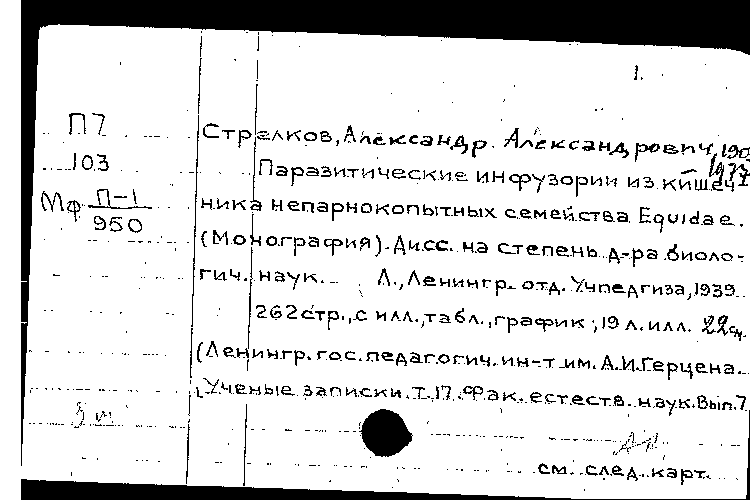 1.
П7
103
Мф П-1
950
Стрелков, Александр Александрович, 190
– 1977
Паразитические инфузории из кишеч-
ника непарнокопытных семейства Equidae.
(Монография). Дисс. на степень д-ра биоло-
гич. наук. Л., Ленингр. отд. Учпедгиза, 1939.
262 стр., с илл., табл., график; 19 л. илл. 22 см.
(Ленингр. гос. педагогич. ин-т им. А.И. Герцена.
Ученые записки. Т. 17. Фак. естеств. наук. Вып. 7
см. след. карт.